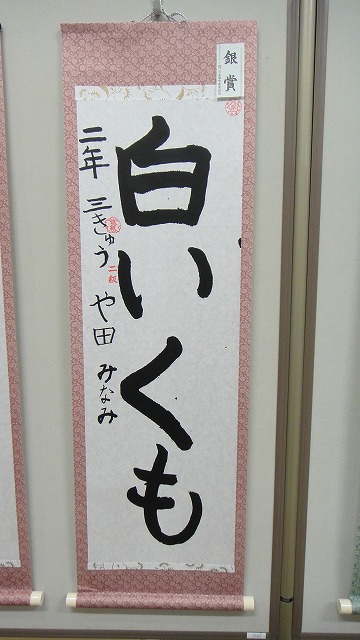 銀賞
白いくも
二年 三きゅう や田 みなみ
二級